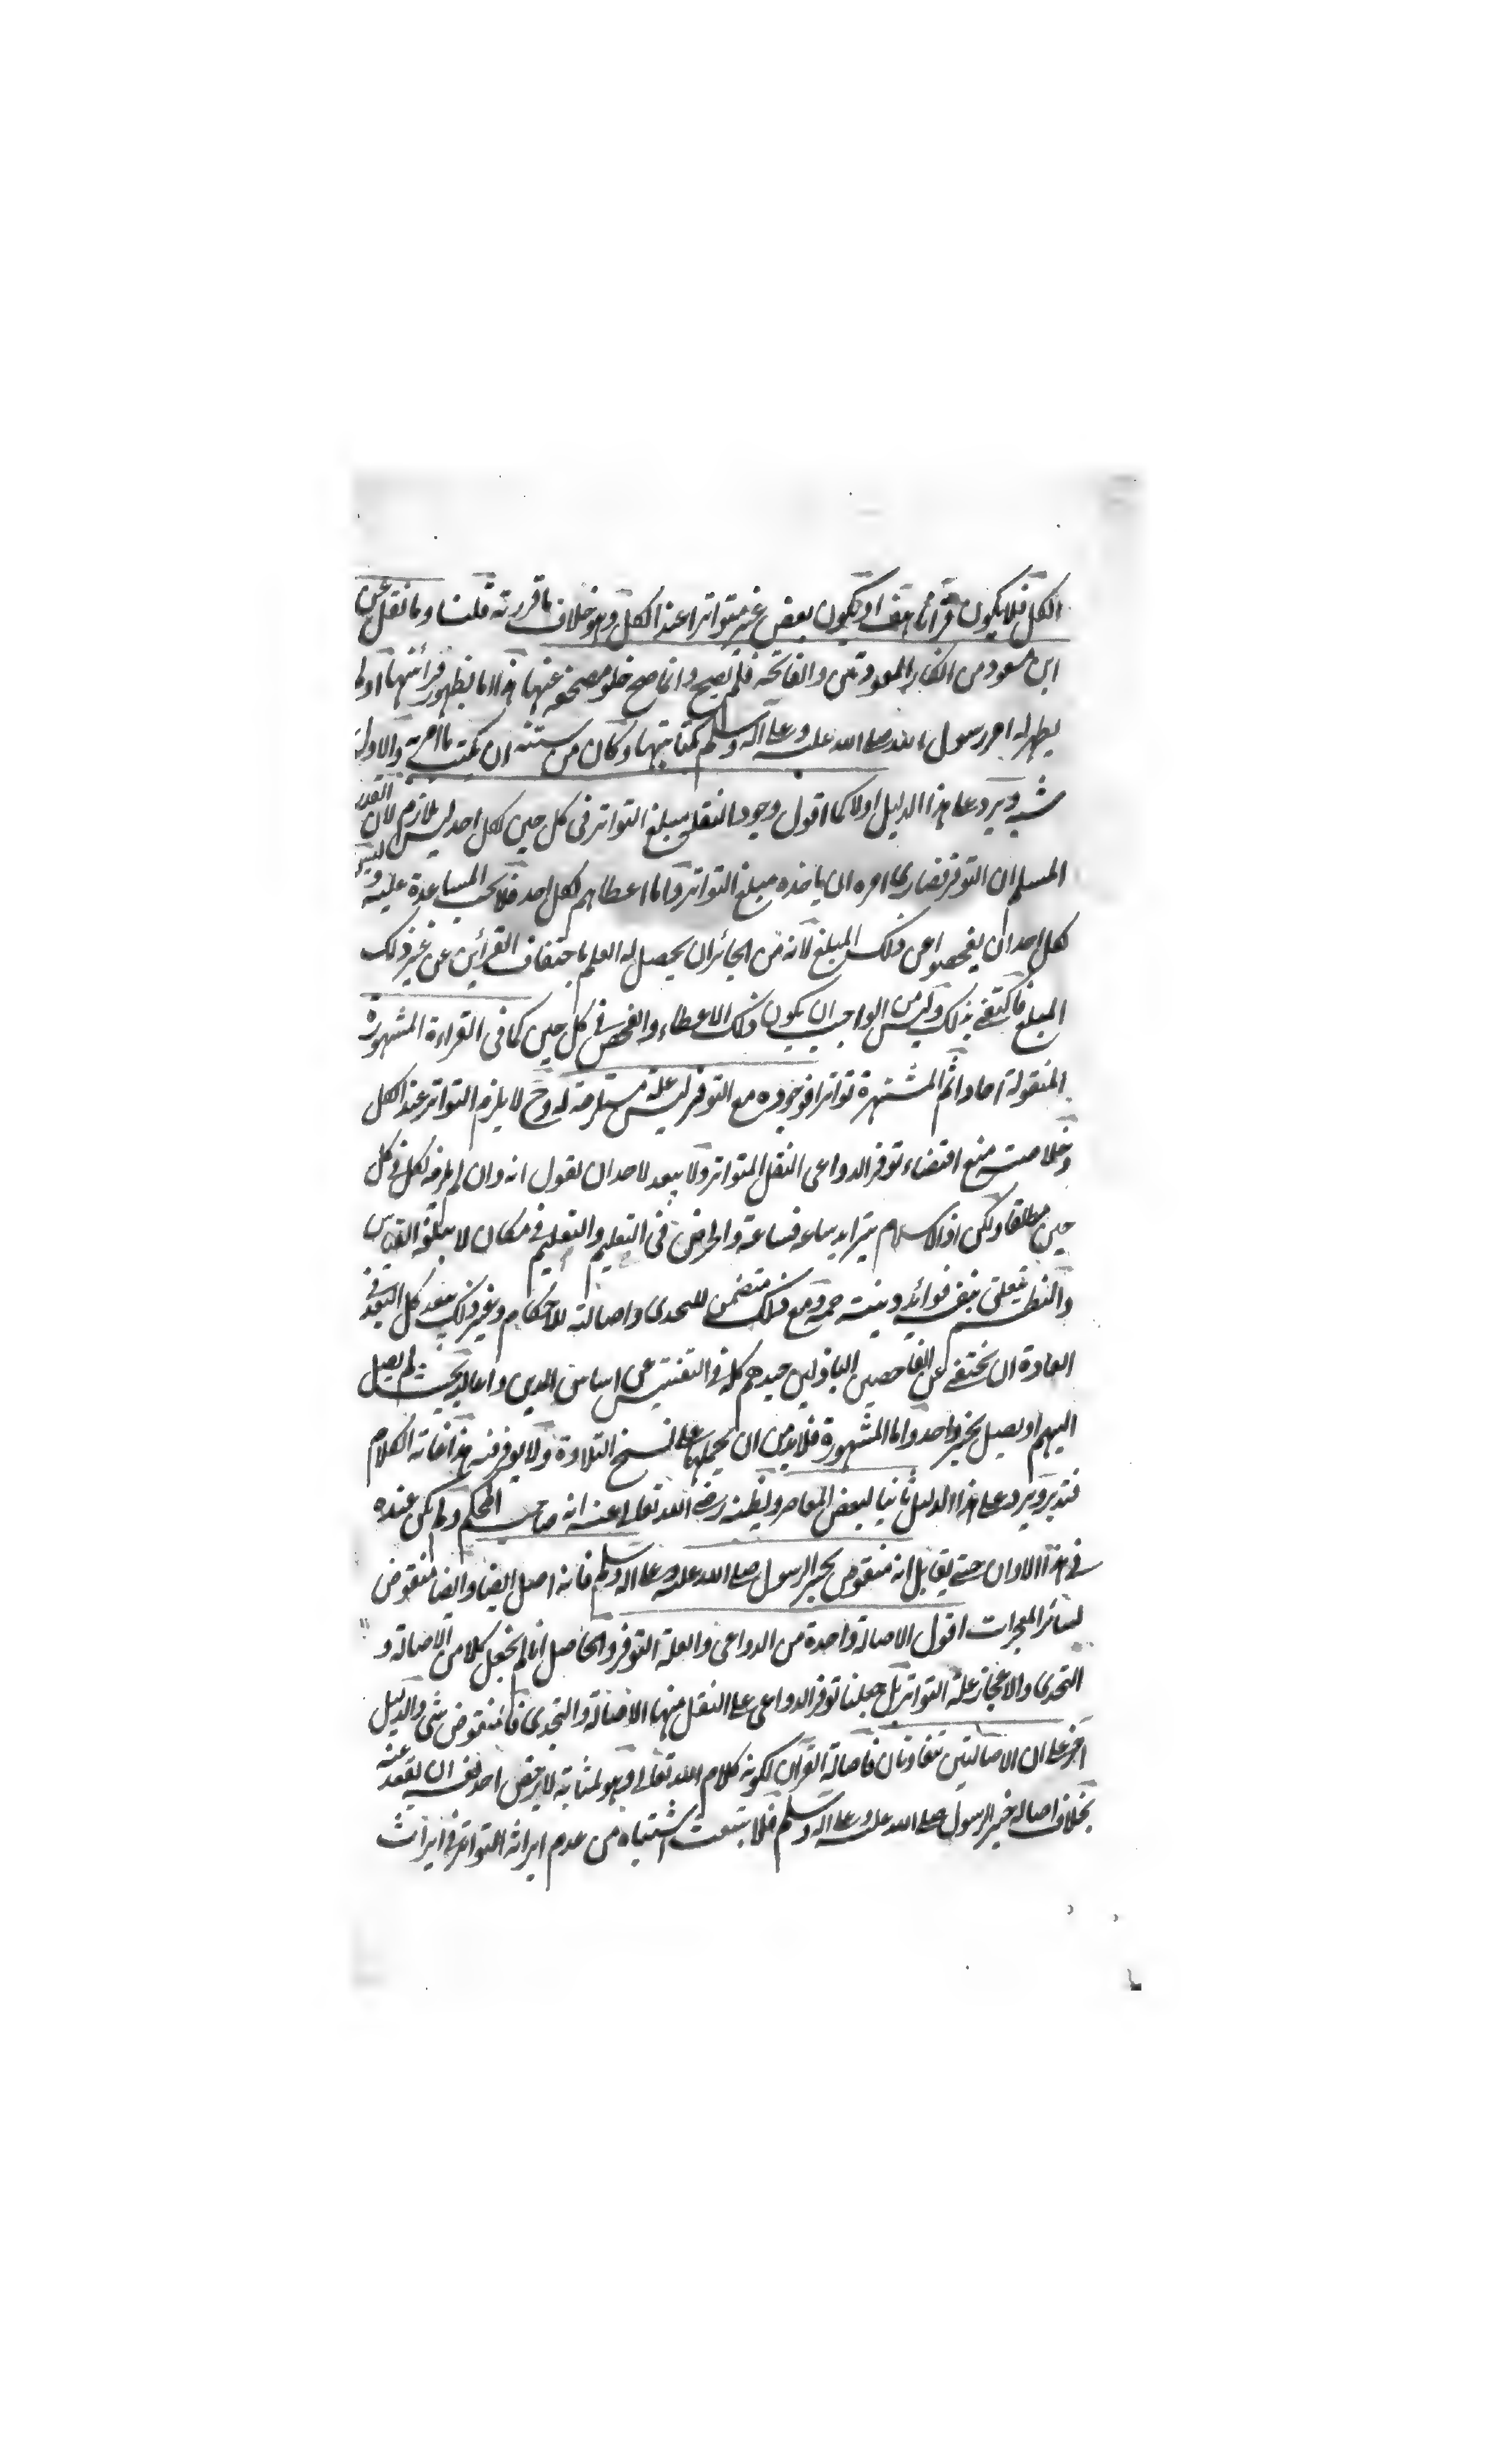 الكل فلا يكون قرآنا هف او يكون بعض غير متواتر عند الكل وهو خلاف ما قررته قلنا وما نقل عن
ابن مسعود من انكار المعوذتين والفاتحة فلم يصح وانما صح خلو مصحفه عنها فى الا ما بظهور قرأئتها او لم
يظهر له امر رسول الله صلى الله عليه وعلى آله وسلم بكتابتها وكان من سنته ان يكتب ما امر به والاول
ويرد على هذا الدليل اولا كما اقول وجود النقل مبلغ التواتر فى كل حين لكل احد ليس بلازم لان القدر
المسلم ان التوفر قصارى امره ان ياخذه مبلغ التواتر واما اعطاهم لكل احد فلا المساعدة عليه وليس
لكل احد ان يفحصوا عن ذلك المبلغ لانه من الجائز ان يحصل له العلم باحتفاف القرائن عن غير ذلك
المبلغ فاكتفى بذلك وليس من الواجب ان يكون ذلك الاعطاء والفحص فى كل حين كما فى القراءة المشهورة
المنقولة احادا ثم المشتهرة تواترا فوجوده مع التوفر ليس علة مستلزمة له وح لا يلزم التواتر عند الكل
وخلاصته منع اقتضاء توفر الدواعى النقل المتواتر ولا يبعد لاحد ان يقول انه وان لم يلزم لكل فى كل
حين مطلقا ولكن اذ الاسلام يتزايد ساعة فساعة والحرص فى التعليم والتعلم فى مكان لا يبلغه القياس
والنظم تتعلق به فوائد دينية جمة ومع ذلك متضمن للتحدى واصالته للاحكام وغير ذلك يبعد كل البعد فى
العادة ان يختفى عن الفاحصين الباذلين جهدهم كله فى التفتيش عن اساس الدين واعاليه بحيث لم يصل
اليهم او يصل بخبر واحد واما المشهورة فلا بد من ان يحملها على نسخ التلاوة ولا يوفر فيه هذا غاية الكلام
فتدبر ويرد على هذا الدليل ثانيا لبعض المعاصر ويظنه رضى الله تعالى عنه انه صاحب المحكم ولم يكن عنده
فى هذا الاوان حتى يقابل انه منقوض بخبر الرسول صلى الله عليه وعلى اله وسلم فانه اصل ايضا وايضا منقوض
لسائر المعجزات اقول الاصالة واحدة من الدواعى والعلة التوفر والحاصل انا لم نجعل كلا من الاصالة و
التحدى والاعجاز علة التواتر بل جعلنا توفر الدواعى على النقل منها الاصالة والتحدى فالمنقوض شئ والدليل
اخر على ان الاصالتين تتفاوتان فاصالة القرآن لكونه كلام الله تعالى وهو بمثابة لا يرخص احد نفسه ان يقعد عنه
بخلاف اصالة خبر الرسول صلى الله عليه وعلى اله وسلم فلا يتبعث اشتباه من عدم ايراثه التواتر فى ايراث